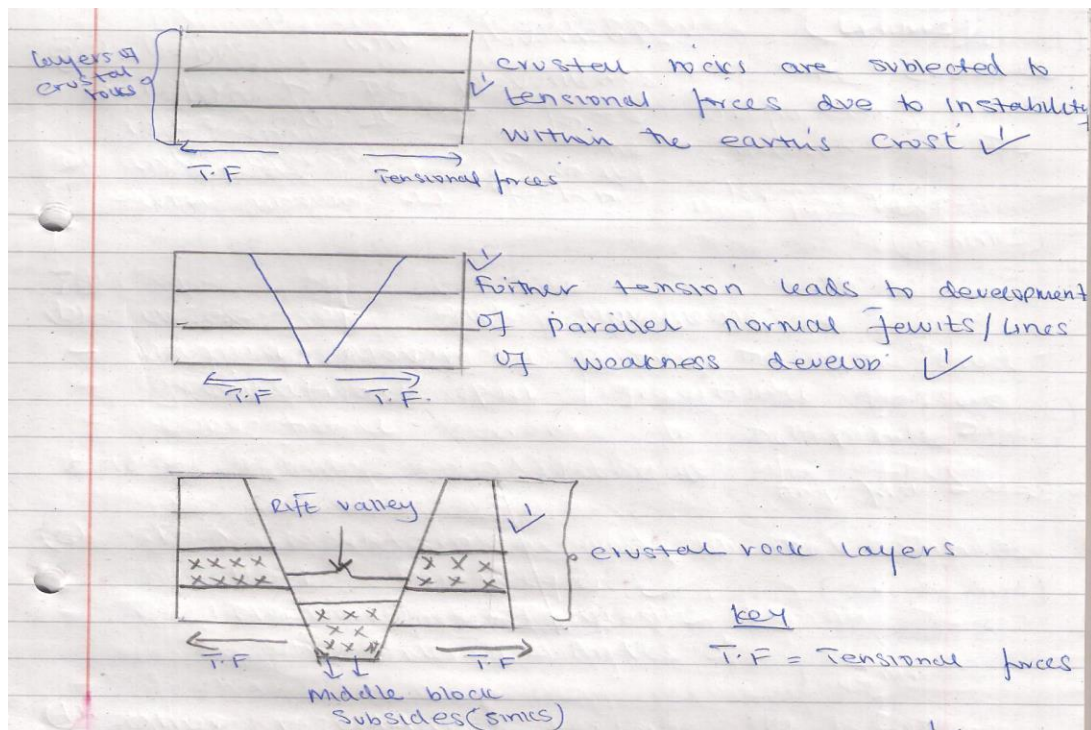 Layers of
crustal
rocks
crustal rocks are subjected to
tensional forces due to instability
within the earth's crost
T.F
Tensional forces
Further tension leads to development
of parallel normal fewits/Lines
of weakness develop
T.F
T.F.
Rift valley
crustal rock layers
key
T.F
T.F
T.F = Tensional forces
Middle block
Subsides (sinics)